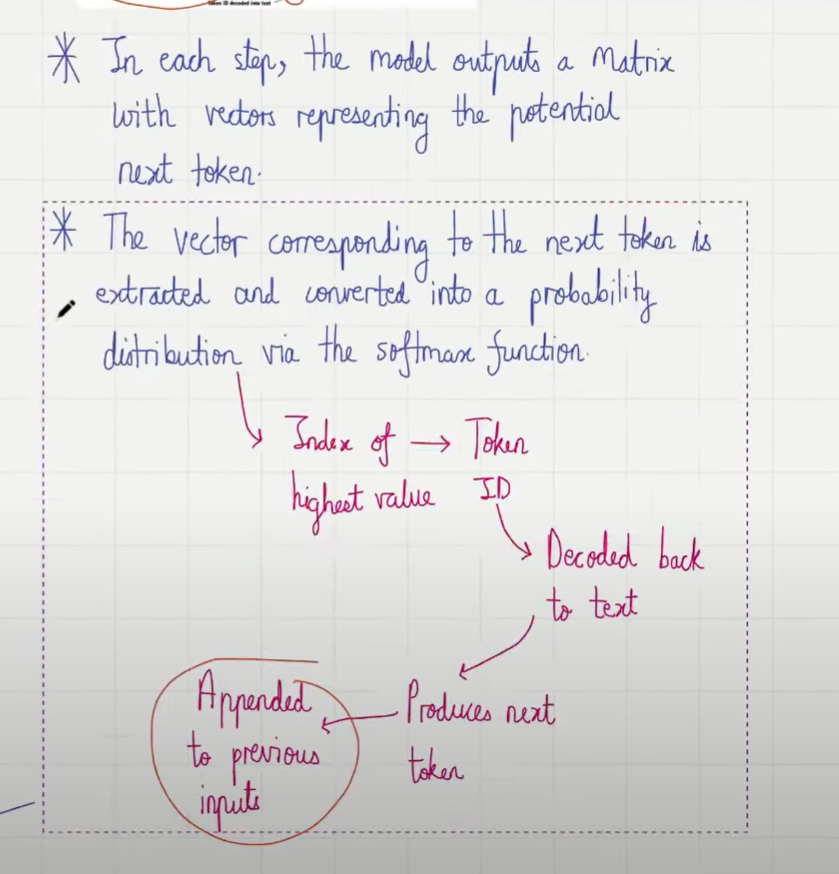 Token ID decoded into text
* In each step, the model outputs a Matrix
with vectors representing the potential
next token.
* The vector corresponding to the next token is
extracted and converted into a probability
distribution via the softmax function.
Index of → Token
highest value ID
Decoded back
to text
Produces next
token
Appended
to previous
inputs